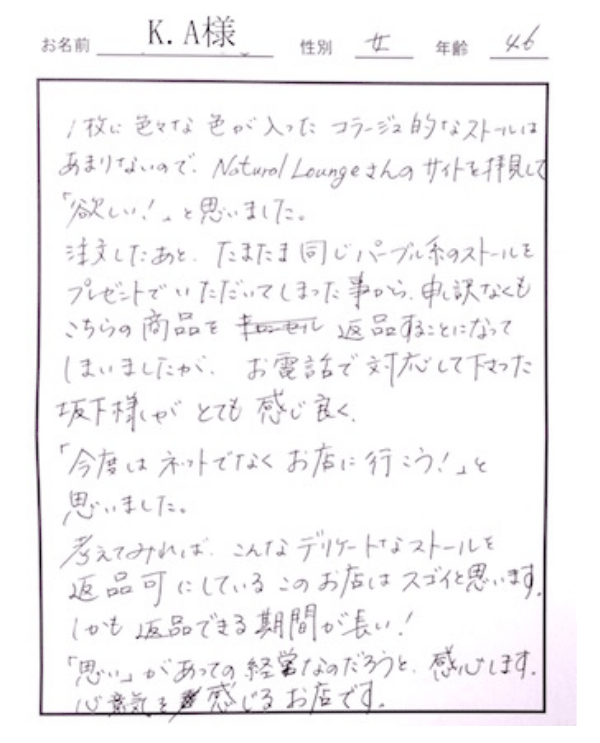 お名前 K.A様 性別 女 年齢 46
1枚に色々な色が入ったコラージュ的なストールは
あまりないので、Natural Loungeさんのサイトを拝見して
「欲しい!」と思いました。
注文したあと、たまたま同じパープル系のストールを
プレゼントでいただいてしまった事から、申し訳なくも
こちらの商品を 返品することになって
しまいましたが、お電話で対応して下さった
坂下様がとても感じ良く、
「今度はネットでなくお店に行こう!」と
思いました。
考えてみれば、こんなデリケートなストールを
返品可にしているこのお店はスゴイと思います。
しかも返品できる期間が長い!
「思い」があっての経営なのだろうと、感心します。
心意気を感じるお店です。